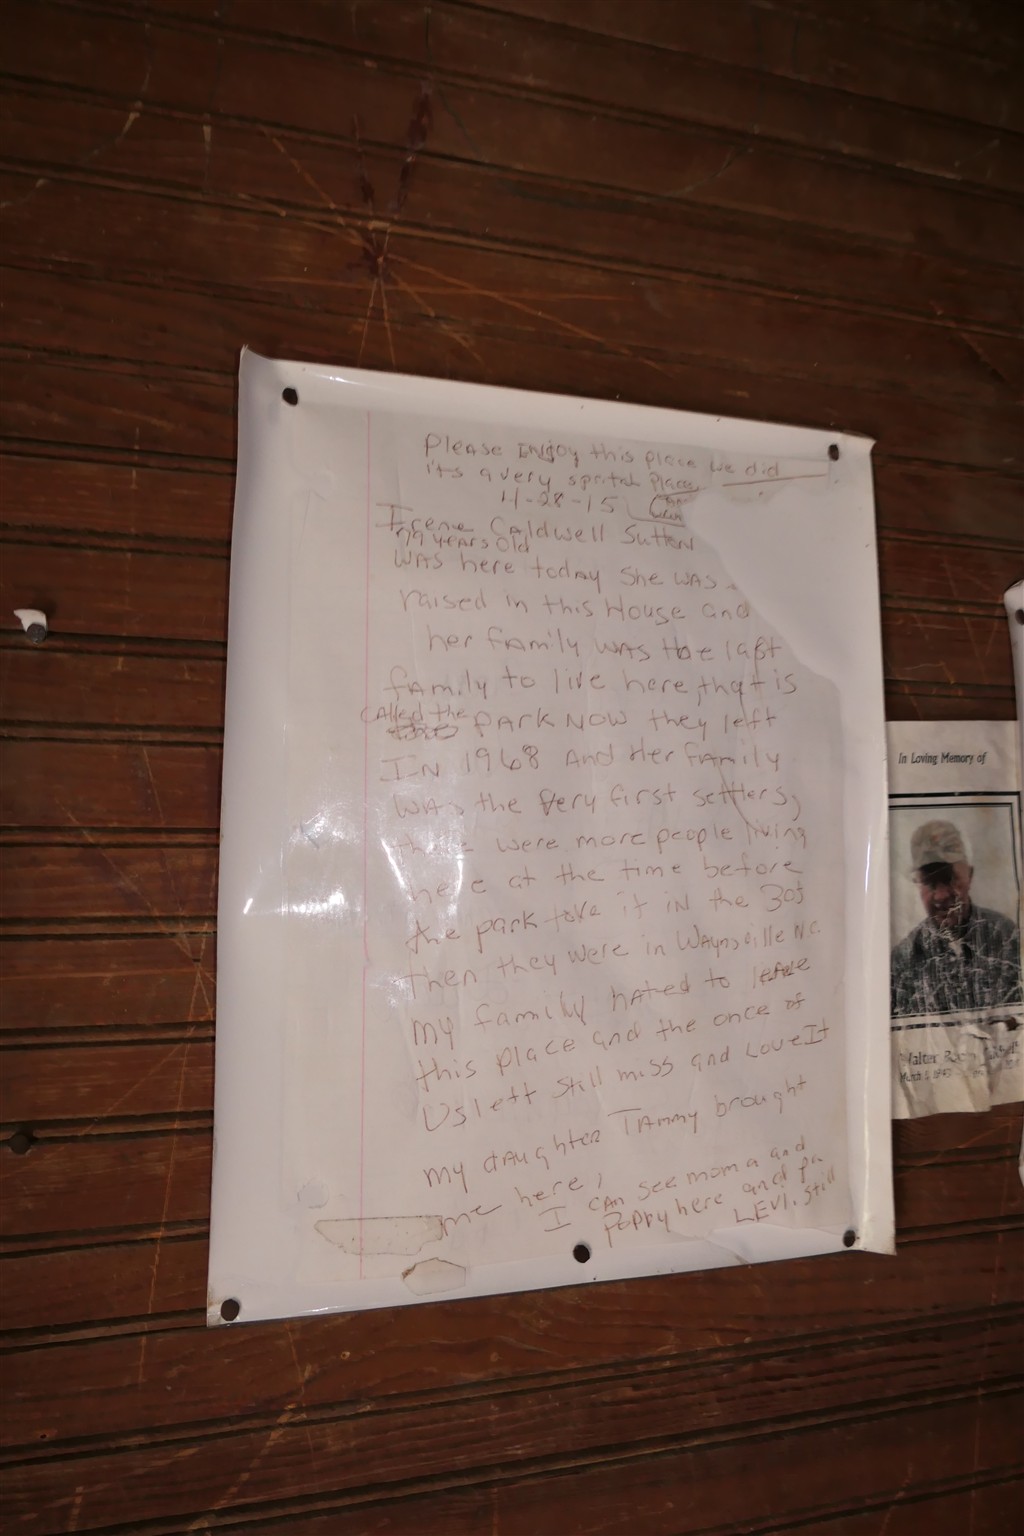 Please Enjoy this place we did
it's a very spritul place
4-28-15
Irene Caldwell Sutton
79 years old
was here today she was
raised in this House and
her family was the last
family to live here, that is
called the PARK NOW they left
IN 1968 And Her family
was the very first settlers,
there were more people living
here at the time before
the park toke it in the 30s
Then they were in Waynsville N.C.
my family hated to leave
this place and the once of
Us left still miss and Love It
my daughter Tammy brought
me here,
I can see moma and
poppy here and pa
LEVI. still
In Loving Memory of
Walter
March